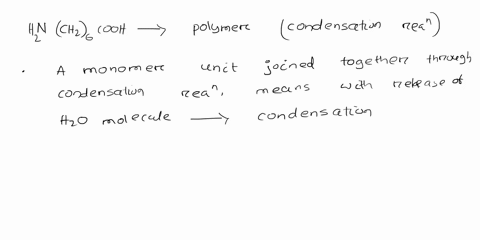 H₂N (CH₂)₆ COOH ⟶ polymere (condensation reaⁿ)
. A monomere unit joined together through
condensation reaⁿ, means with release of
H₂O molecule ⟶ condensation